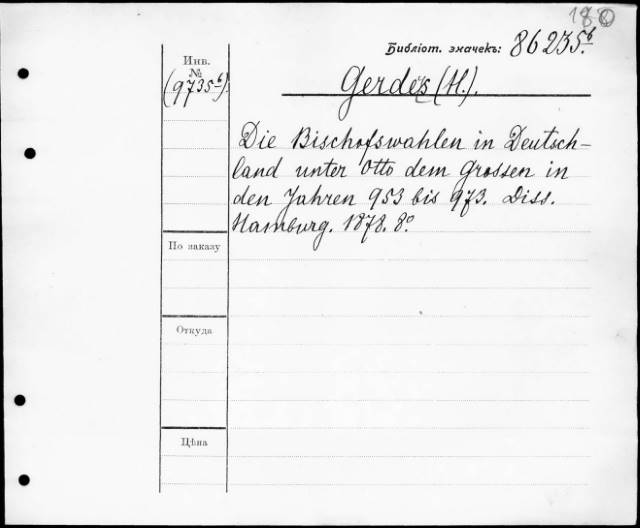 180
Библіот. значекъ: 86235.б
Инв.
№
(9735б).
Gerdes (H.).
Die Bischofswahlen in Deutsch-
land unter Otto dem Grossen in
den Jahren 953 bis 973. Diss.
Hamburg. 1878. 8°.
По заказу
Откуда
Цѣна